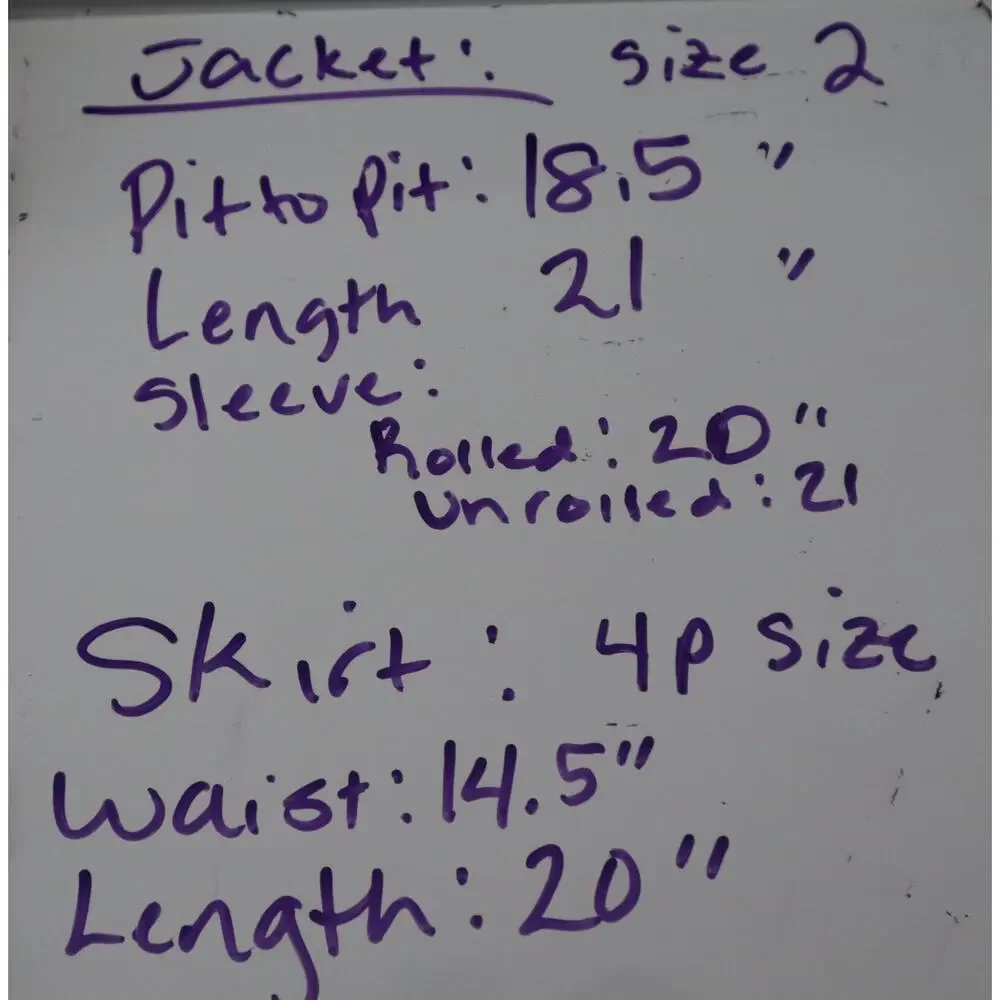 Jacket: size 2
Pit to Pit: 18.5 "
Length 21 "
Sleeve:
Rolled: 20 "
Unrolled: 21
Skirt: 4P Size
Waist: 14.5"
Length: 20"